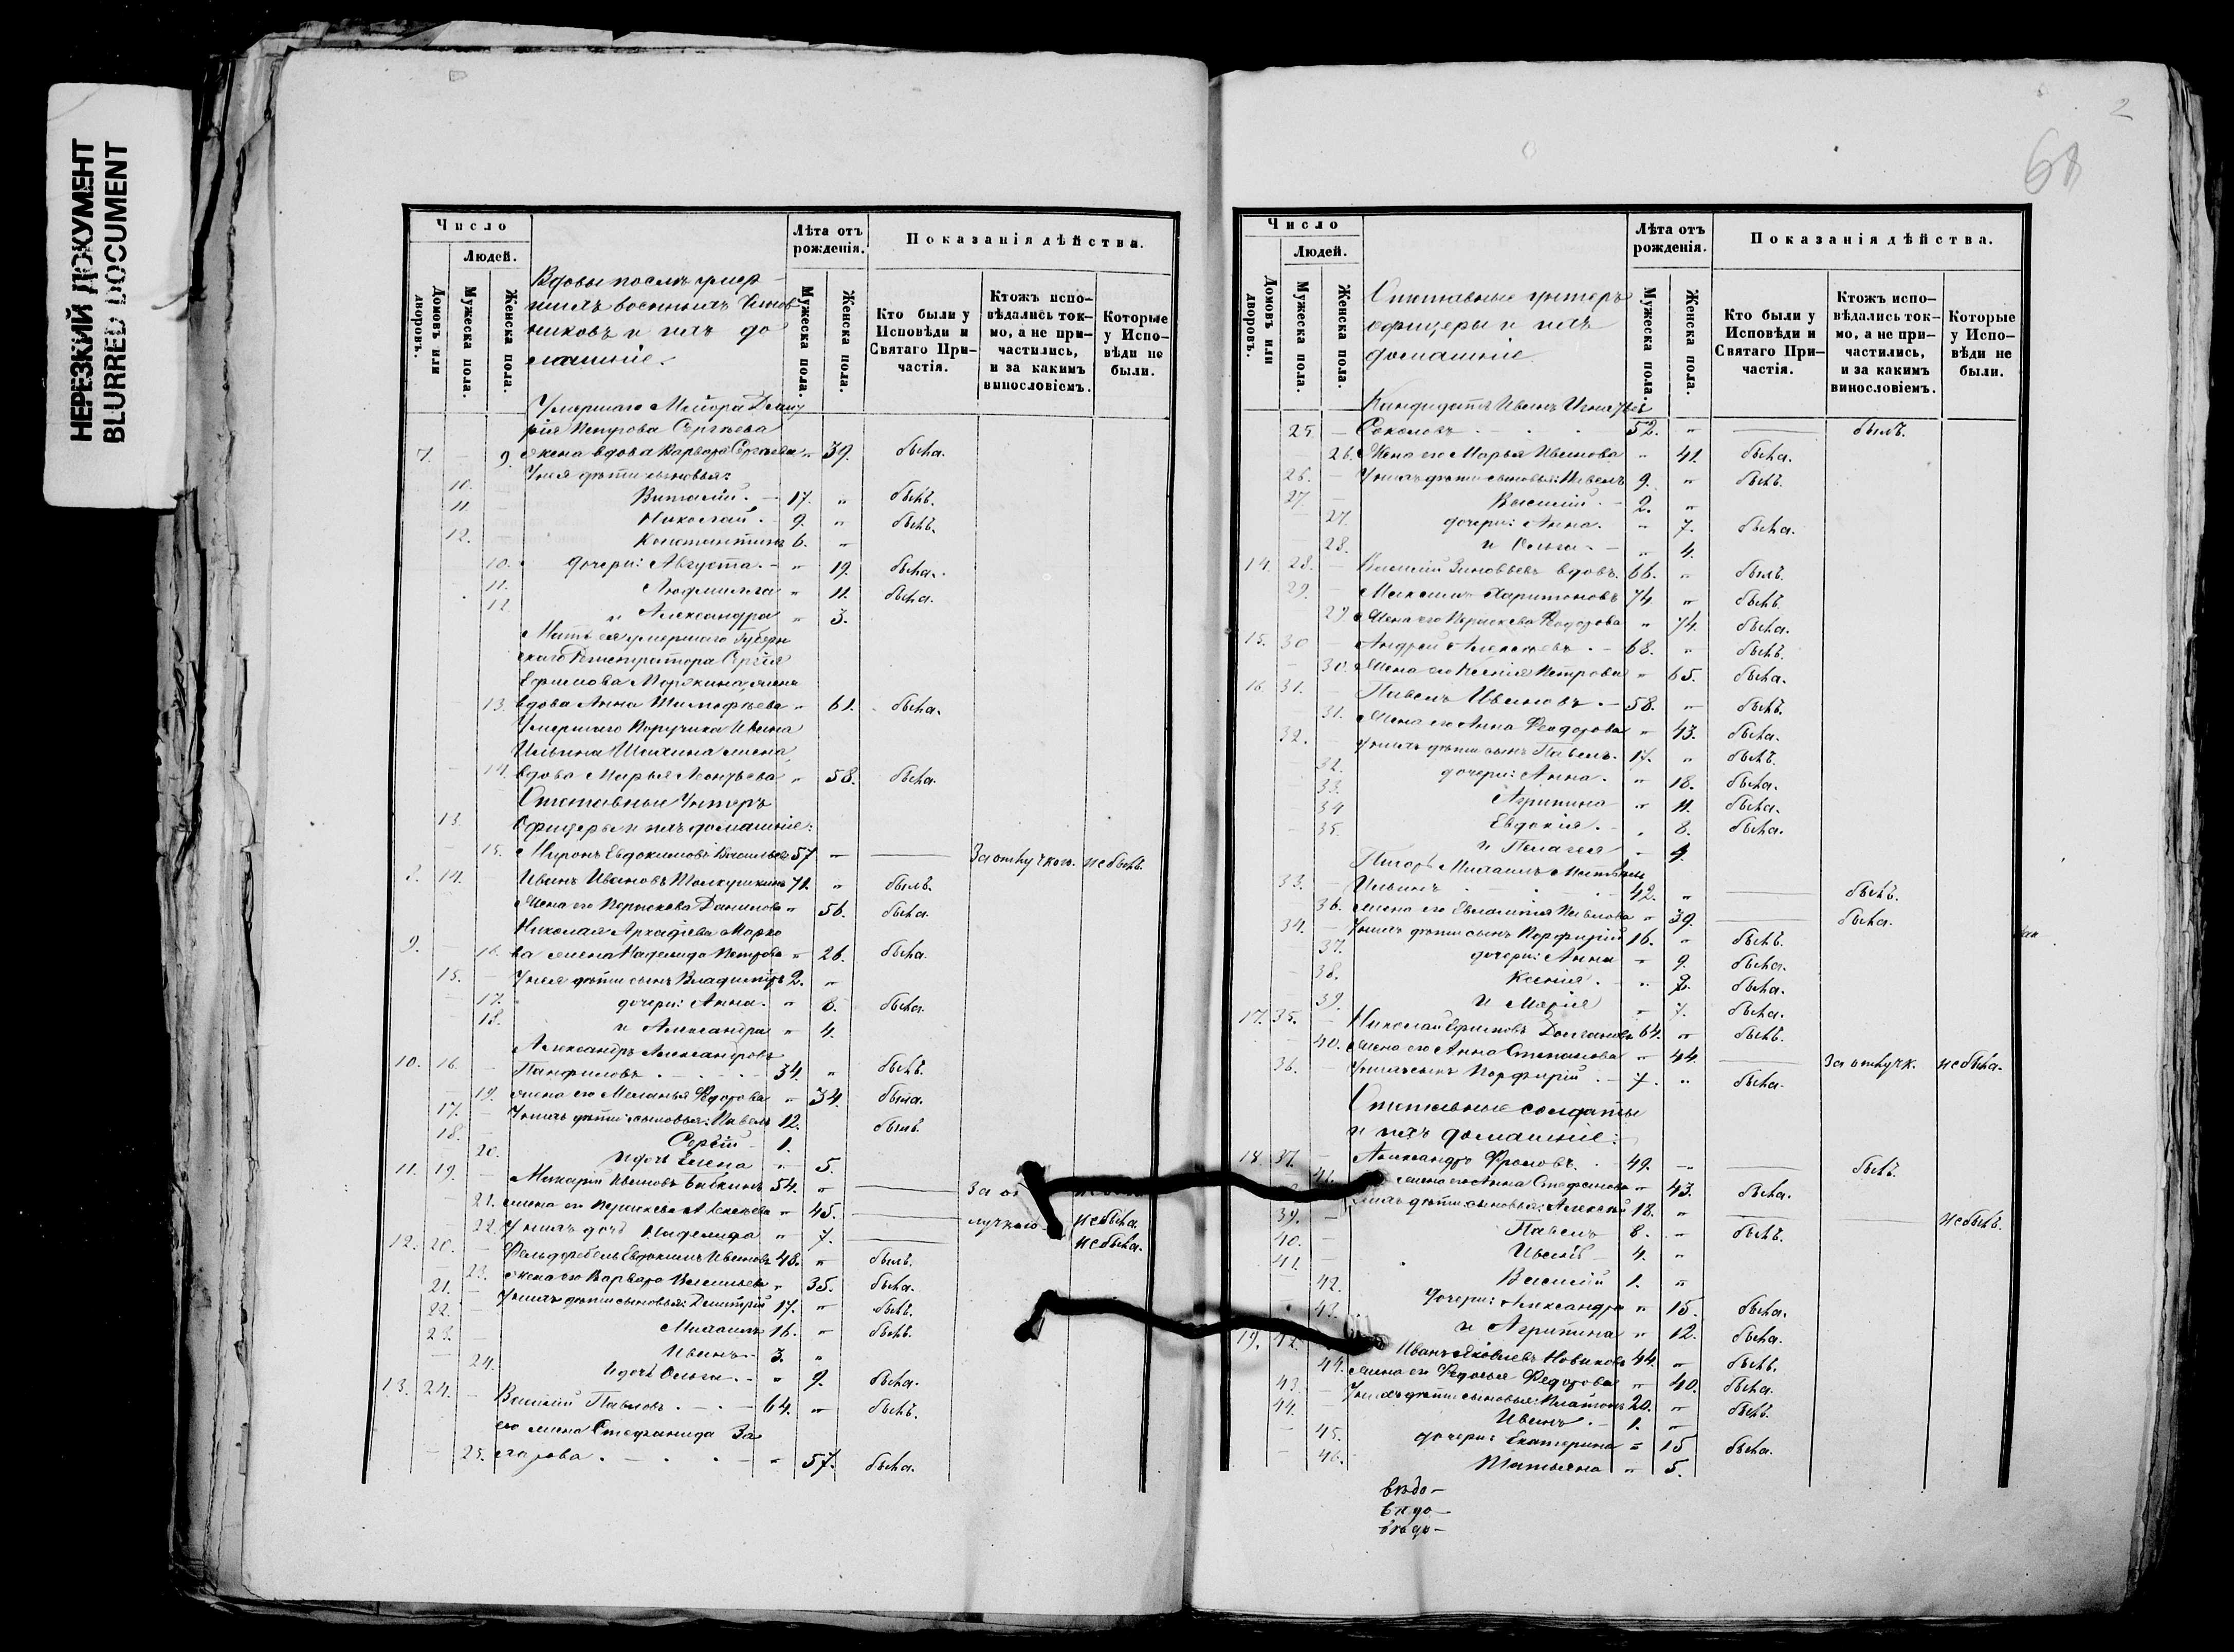 НЕРЕЗКИЙ ДОКУМЕНТ
BLURRED DOCUMENT
Число
Людей.
Домовъ или дворовъ.
Мужеска пола.
Женска пола.
Вдовы послѣ умер-
шихъ военныхъ Чинов
никовъ и ихъ до
машніе.
Лѣта отъ рожденія.
Мужеска пола.
Женска пола.
Показанія дѣйства.
Кто были у Исповѣди и Святаго Причастія.
Ктожъ исповѣдались токмо, а не причастились, и за какимъ винословіемъ.
Которые у Исповѣди не были.
Умершаго Маіора Дмит
рія Петрова Сергѣева
7. 9. жена вдова Варвара Сергѣева " 39. была.
У нея дѣти сыновья:
10. Виталій. 17. " былъ.
11. Николай. 9. " былъ.
12. Константинъ 6. "
10. дочери: Августа. " 19. была.
11. Людмилла " 11. была.
12. и Александра " 3.
Мать ея умершаго Губерн
скаго Регистратора Сергія
Ефимова жена
13. вдова Анна Тимофѣева " 61. была.
Умершаго Поручика Ивана
Ильина Шахина жена
14. вдова Марья Леонтьева " 58. была.
Отставные Унтеръ
13. Офицеры и ихъ домашніе:
15. Миронъ Евдокимовъ Васильевъ 57 " За отлучкою. не былъ.
8. 14. Иванъ Ивановъ 71. " былъ.
Жена его Парасковья Данилова " 56. была.
Николая Аркадіева Марко
9. 16. ва жена Надежда Петрова " 26. была.
15. У нея дѣти сынъ Владимiръ 2. "
17. дочери: Анна. " 8. была.
18. и Александра " 4.
Александръ Александровъ
10. 16. Панфиловъ 34. " былъ.
19. жена его Меланья Федорова " 34. была.
17. У нихъ дѣти: сыновья: Павелъ 12. былъ.
18. Сергѣй 1.
20. и дочь Елена " 5.
11. 19. Макарій Ивановъ Бабкинъ 54. " За от
21. жена его Парасковья Алексѣева " 45. лучкою не была.
22. У нихъ дочь Надежда " 7. не была.
12. 20. Фельдфебель Евдокимъ Ивановъ 48. " былъ.
23. Жена его Варвара Васильева " 35. была.
21. У нихъ дѣти сыновья: Димитрій 17. " былъ.
22. Михаилъ 16. " былъ.
23. Иванъ 3. "
24. и дочь Ольга " 9. была.
13. 24. Василій Павловъ 64. " былъ.
его жена Стефанида За
25. харова " 57. была.
2
68
Число
Людей.
Домовъ или дворовъ.
Мужеска пола.
Женска пола.
Отставные унтеръ
офицеры и ихъ
домашніе
Лѣта отъ рожденія.
Мужеска пола.
Женска пола.
Показанія дѣйства.
Кто были у Исповѣди и Святаго Причастія.
Ктожъ исповѣдались токмо, а не причастились, и за какимъ винословіемъ.
Которые у Исповѣди не были.
Кандидатъ Иванъ Игнатьев
25 Соколовъ 52. " былъ.
26. Жена его Марья Иванова " 41. была.
26. У нихъ дѣти сыновья: Павелъ 9. " былъ.
27. Василий 2. "
27. дочери: Анна. " 7. была.
28. и Ольга " 4.
14. 28. Василій Зиновьевъ вдовъ. 66. " былъ.
29. Максимъ Харитоновъ 74. " былъ.
29. Жена его Парасковья Феодорова " 74. была.
15. 30 Андрей Алексѣевъ 68. " былъ.
30. Жена его Ксенія Петрова " 65. была.
16. 31. Павелъ Ивановъ 58. " былъ.
31. Жена его Анна Феодорова " 43. была.
32. У нихъ дѣти сынъ Павелъ. 17. " былъ.
32. дочери: Анна. " 18. была.
33. Агрипина " 11. была.
34 Евдокія. " 8. была.
35. и Пелагея " 4.
Писарь Михаилъ
33. Ильинъ 42. " былъ.
36. жена его Евлампія Павлова " 39. была.
34. У нихъ дѣти сынъ Порфирій 16. " былъ.
37. дочери: Анна " 9. была.
38. Ксенія. " была.
39. и Марія " 7. была.
17. 35. Николай Ефимовъ 64. " былъ.
40. Жена его Анна Степанова " 44. За отлучк. не была.
36. У нихъ сынъ Порфирій 7. " была.
Отставные солдаты
и ихъ домашніе:
18. 37. Александръ Фроловъ. 49. " былъ.
41. жена его Анна Стефанова " 43. была.
дѣти сыновья: Алексѣй 18. " не былъ.
39. Павелъ 8. " былъ.
40. Иванъ 4. "
41. Василій 1. "
42. Дочери: Александра " 15. была.
43. и Агрипина " 12. была.
19. 42. Иванъ Яковлевъ Новиковъ 44. " былъ.
44. жена его Федосья Федорова " 40. была.
43. У нихъ дѣти сыновья: Платонъ 20. " былъ.
44. Иванъ 1. "
45. дочери: Екатерина " 15 была.
46. Татьяна " 5.
вѣдо-